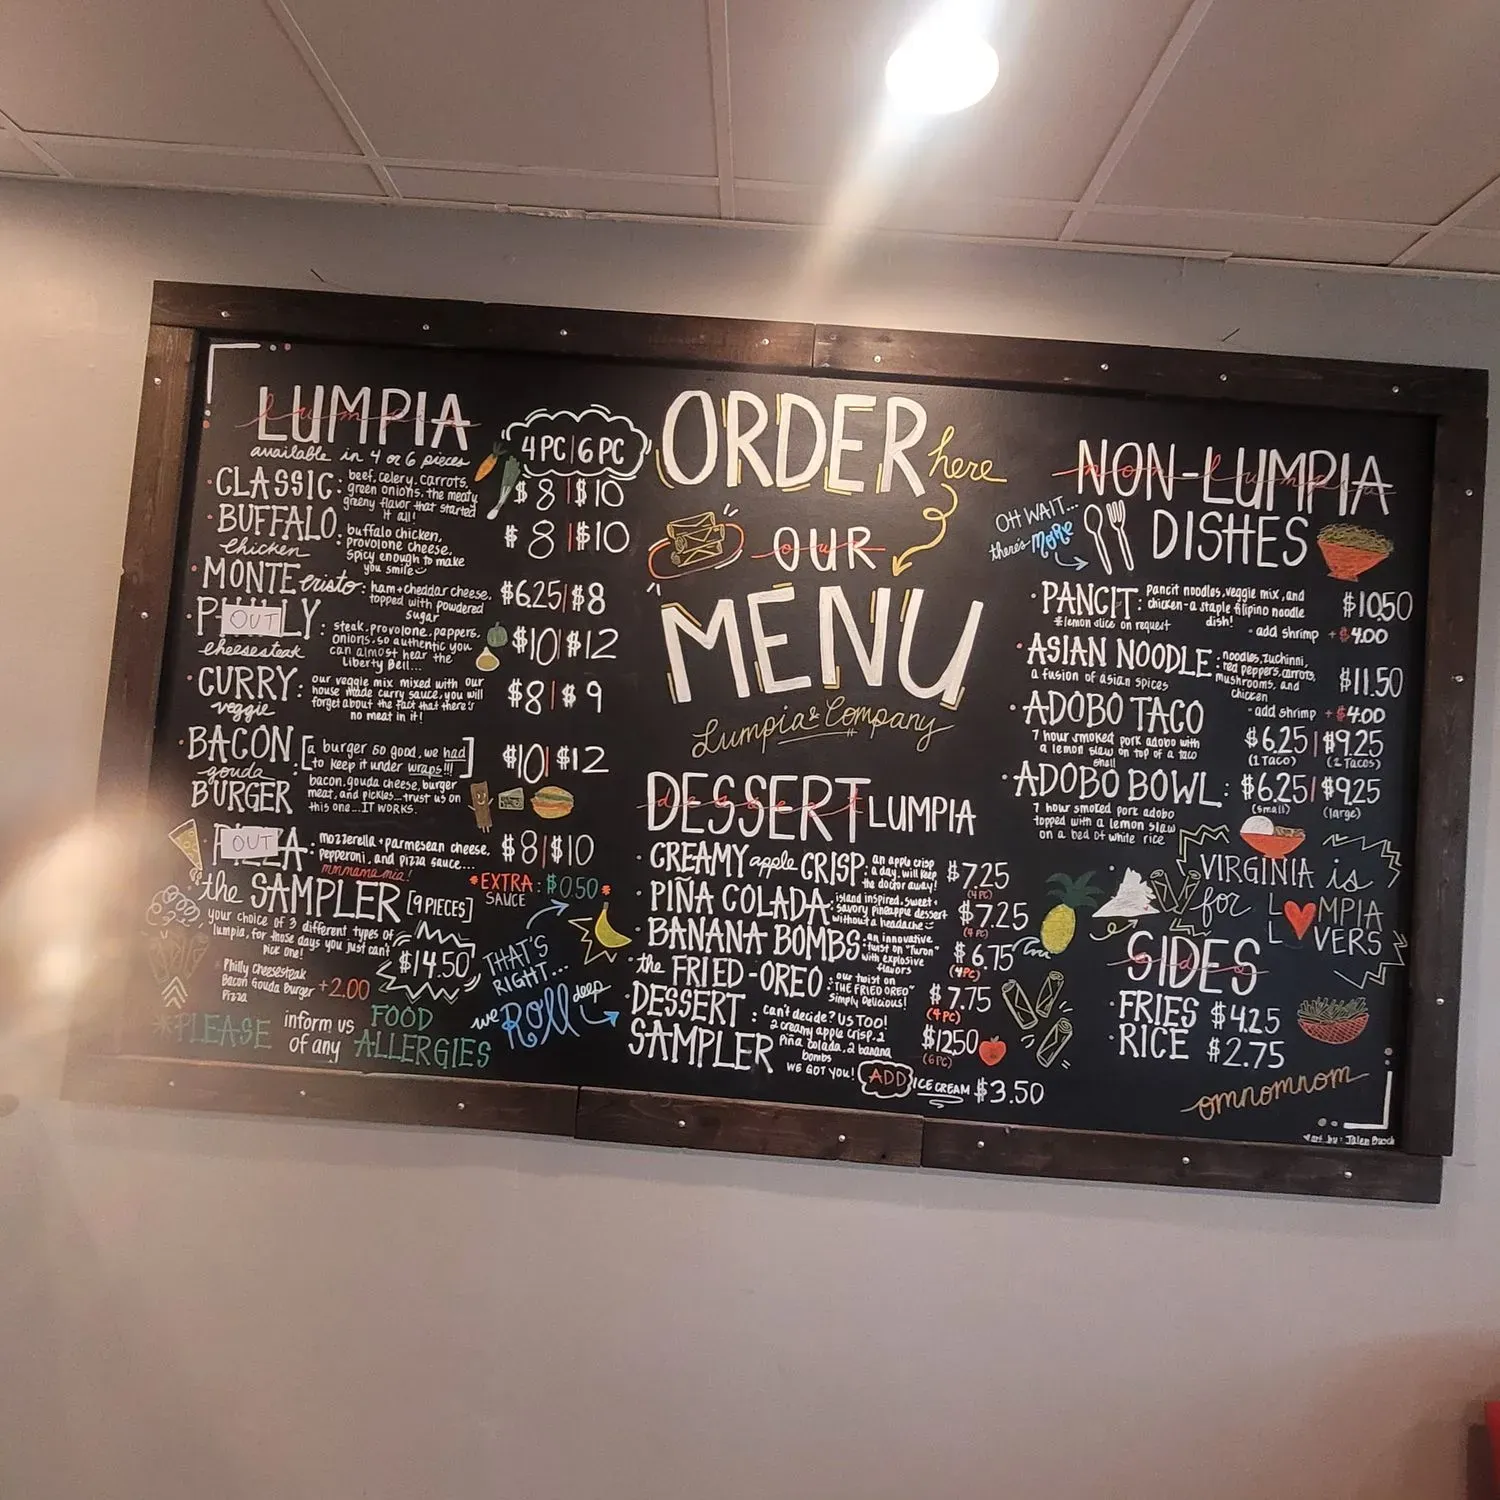 LUMPIA
available in 4 or 6 pieces
4 PC | 6 PC
CLASSIC: beef, celery, carrots, $8 | $10
green onions, the meaty
greeny flavor that started
it all!
BUFFALO: buffalo chicken, $8 | $10
chicken provolone cheese,
spicy enough to make
you smile
MONTE cristo: ham + cheddar cheese, $6.25 | $8
topped with powdered
sugar
PHILLY: steak, provolone, peppers, $10 | $12
OUT
cheesesteak onions, so authentic you
can almost hear the
Liberty Bell...
CURRY: our veggie mix mixed with our $8 | $9
veggie house made curry sauce, you will
forget about the fact that there's
no meat in it!
BACON [a burger so good, we had $10 | $12
gouda to keep it under wraps!!!]
BURGER bacon, gouda cheese, burger
meat, and pickles... trust us on
this one... IT WORKS.
PIZZA: mozzerella + parmesean cheese, $8 | $10
OUT
pepperoni, and pizza sauce...
mmmama mia!
*EXTRA: $0.50*
SAUCE
the SAMPLER [9 PIECES]
your choice of 3 different types of
lumpia, for those days you just can't
pick one!
$14.50
Philly Cheesesteak
Bacon Gouda Burger +2.00
Pizza
*PLEASE inform us FOOD
of any ALLERGIES
THAT'S
RIGHT...
we ROLL deep
ORDER here
OUR
MENU
Lumpia & Company
DESSERT LUMPIA
CREAMY apple CRISP: an apple crisp $7.25
a day, will keep (4 PC)
the doctor away!
PIÑA COLADA: island inspired, sweet + $7.25
savory pineapple dessert (4 PC)
without a headache
BANANA BOMBS: an innovative $6.75
twist on "Turon" (4PC)
with explosive
flavors
the FRIED-OREO: our twist on $7.75
"THE FRIED OREO" (4 PC)
Simply Delicious!
DESSERT: can't decide? US TOO! $12.50
SAMPLER 2 creamy apple crisp, 2 (6 PC)
piña colada, 2 banana
bombs
WE GOT YOU!
ADD ICE CREAM $3.50
NON-LUMPIA
DISHES
OH WAIT...
there's MORE
PANCIT: pancit noodles, veggie mix, and $10.50
chicken - a staple filipino noodle
dish!
*lemon slice on request
- add shrimp + $4.00
ASIAN NOODLE: noodles, zuchinni, $11.50
a fusion of asian spices red peppers, carrots,
mushrooms, and
chicken
- add shrimp + $4.00
ADOBO TACO $6.25 | $9.25
7 hour smoked pork adobo with (1 TACO) (2 TACOS)
a lemon slaw on top of a taco
shell
ADOBO BOWL: $6.25 | $9.25
7 hour smoked pork adobo (small) (large)
topped with a lemon slaw
on a bed of white rice
VIRGINIA is
for L♥MPIA
L♥VERS
SIDES
FRIES $4.25
RICE $2.75
omnomnom
art by: Jalen